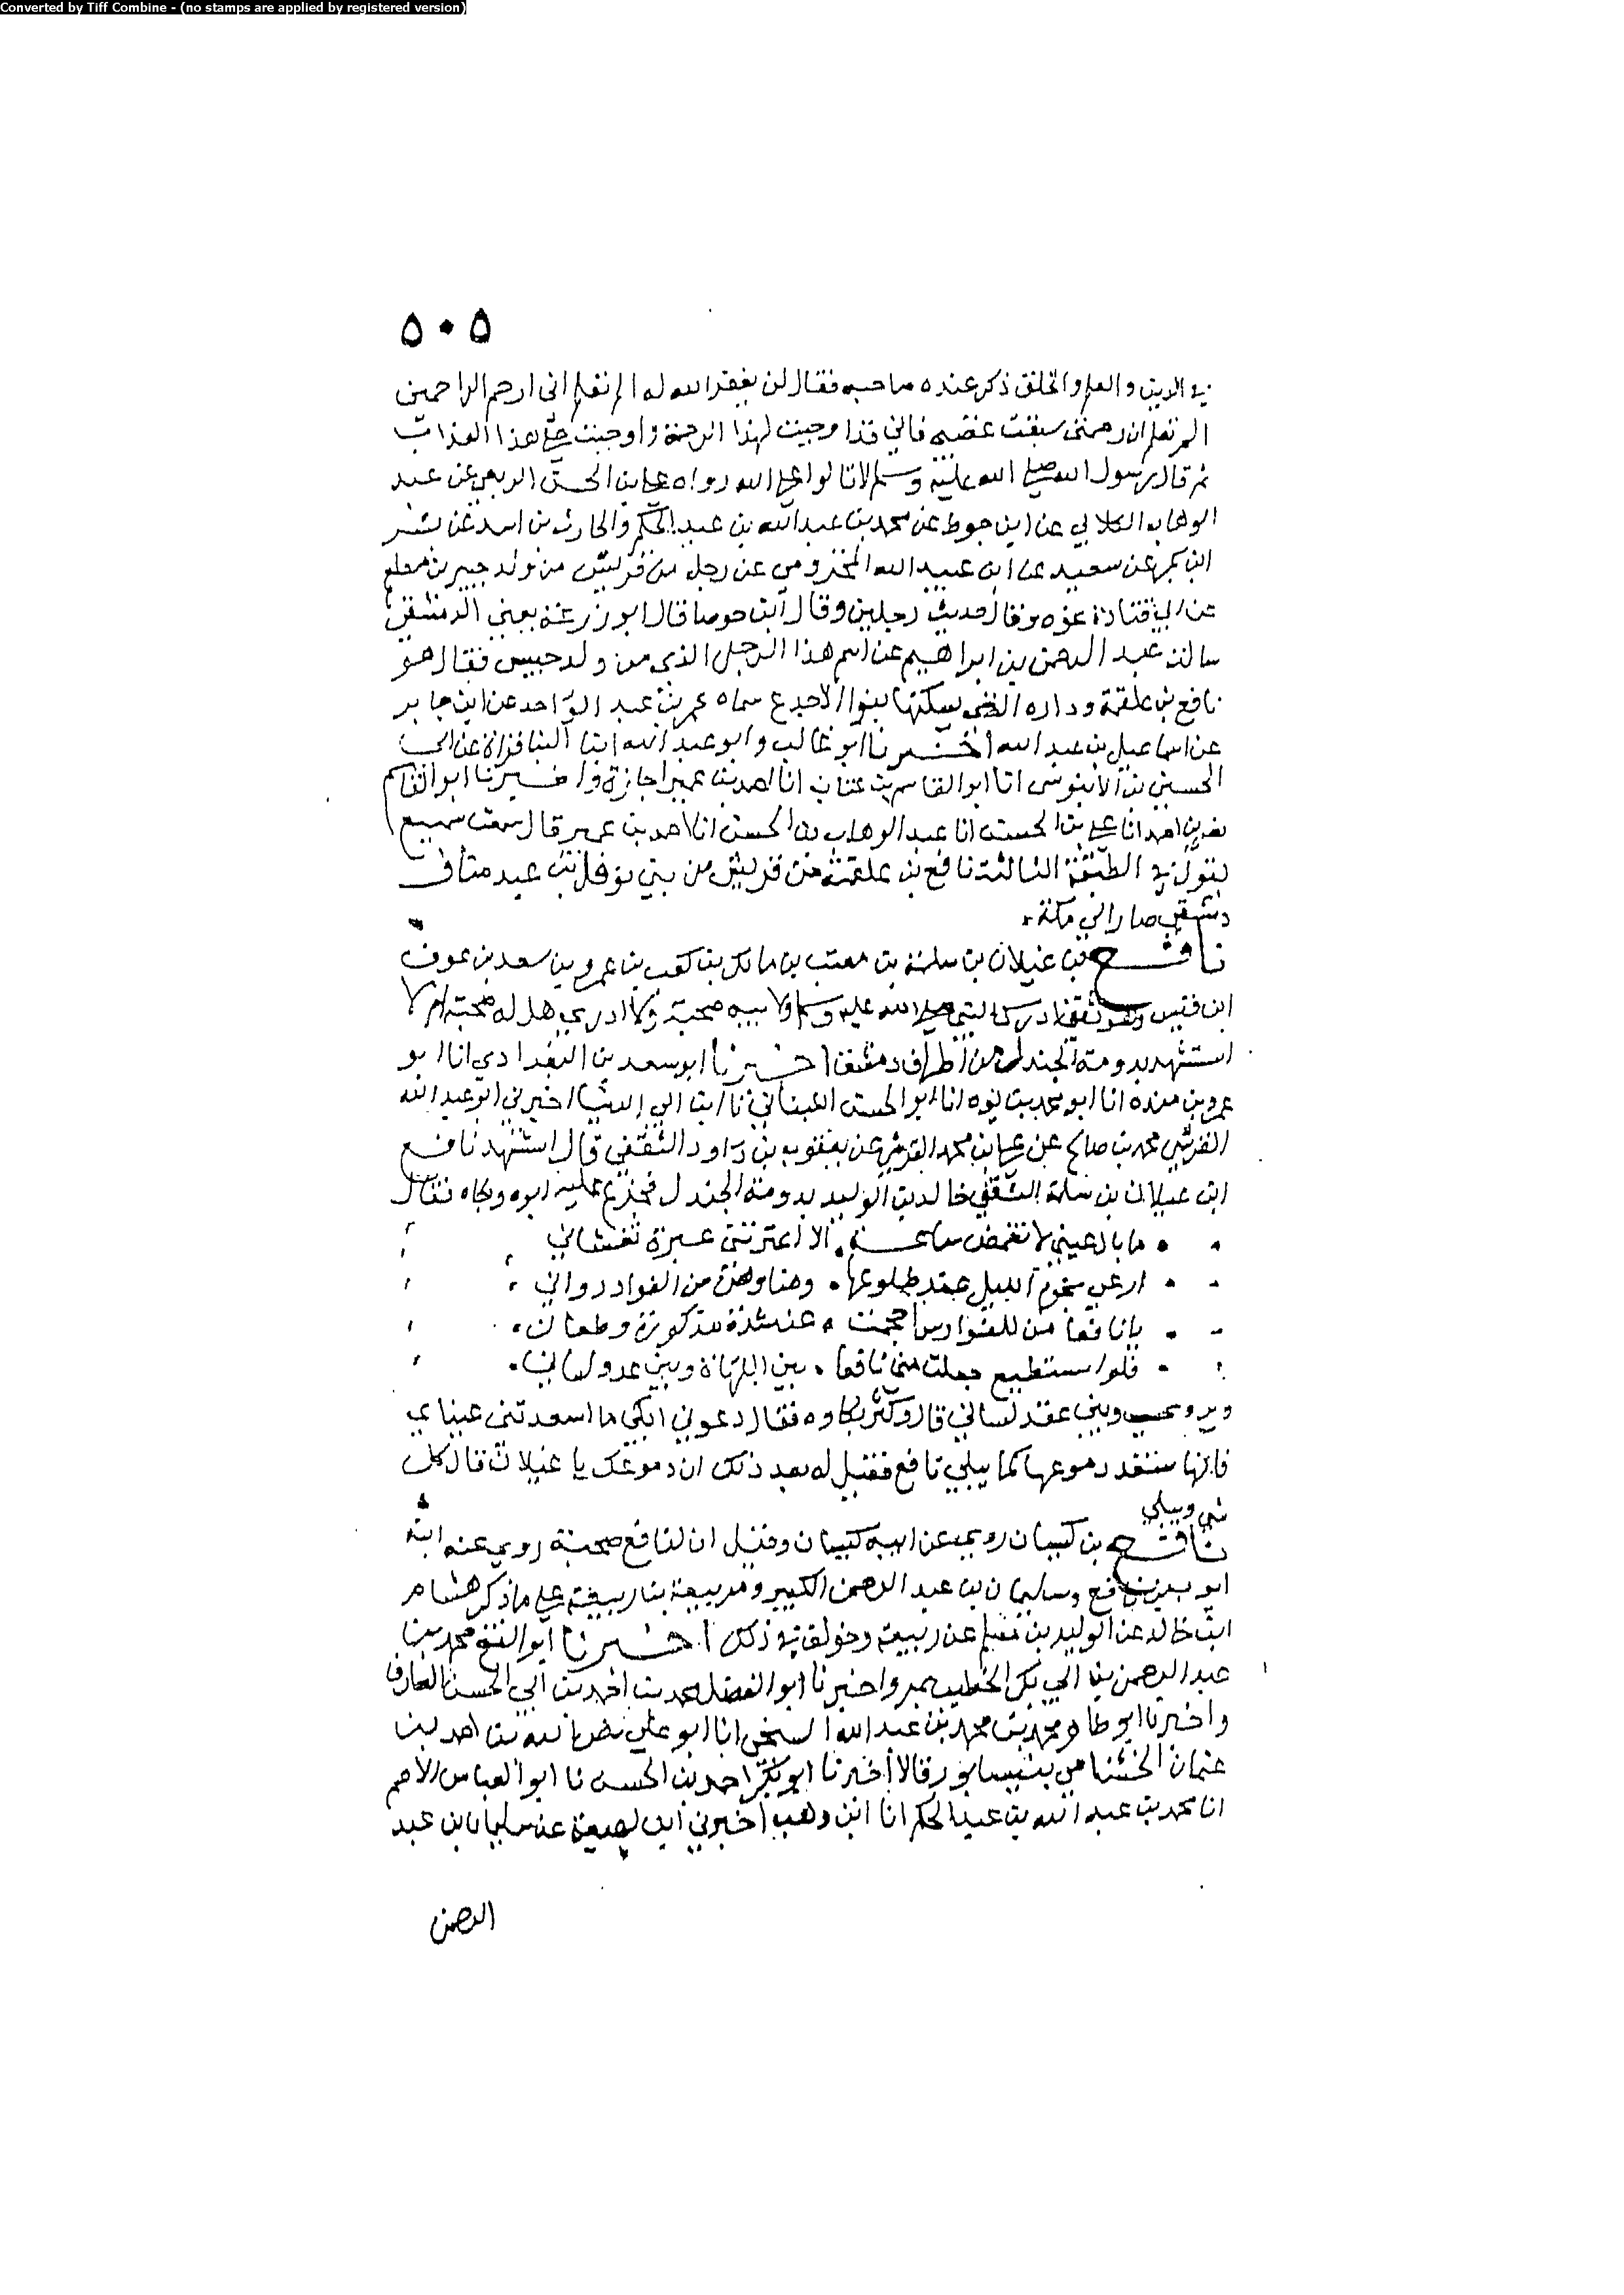 Converted by Tiff Combine - (no stamps are applied by registered version)
٥٠٥
في الدين والعلم والخلق ذكر عنده صاحبه فقال لن يغفر الله له الم تعلم اني ارحم الراحمين
الم تعلم ان رحمتي سبقت غضبي فاني قد اوجبت لهذا الرحمة واوجبت على هذا العذاب
ثم قال رسول الله صلى الله عليه وسلم لا تالوا على الله رواه علي بن الحسن الربعي عن عبد
الوهاب الكلابي عن ابن جوصا عن محمد بن عبد الله بن عبد الحكم والحارث بن اسد عن بشر
ابن بكر عن سعيد عن ابن عبيد الله المخزومي عن رجل من قريش من ولد جبير بن مطعم
عن ابي قتادة نحوه وقال حديث رجلين وقال ابن جوصا قال ابو زرعة يعني الدمشقي
سالت عبد الرحمن بن ابراهيم عن اسم هذا الرجل الذي من ولد جبير فقال هو
نافع بن علقمة وداره التي يسكنها بنوا الاجدع سماه عمر بن عبد الواحد عن ابن جابر
عن اسماعيل بن عبد الله اخبرنا ابو غالب وابو عبد الله ابنا البنا قراة عن ابي
الحسين بن الابنوسي انا ابو القاسم بن عتاب انا احمد بن عمير اجازة واخبرنا ابو القاسم
نصر بن احمد انا علي بن الحسن انا عبد الوهاب بن الحسن انا احمد بن عمير قال سمعت سميع
يقول في الطبقة الثالثة نافع بن علقمة من قريش من بني نوفل بن عبد مناف
دمشقي صار الى مكة
نافع بن غيلان بن سلمة بن معتب بن مالك بن كعب بن عمرو بن سعد بن عوف
ابن قيس وهو ثقفي ادرك النبي صلى الله عليه وسلم ولابيه صحبة ولا ادري هل له صحبة ام لا
استشهد بدومة الجندل من اطراف دمشق اخبرنا ابو سعد بن البغدادي انا ابو
عمرو بن منده انا ابو محمد بن يوه انا ابو الحسن اللبناني نا ابن ابي الدنيا اخبرني ابو عبد الله
القرشي محمد بن صالح عن علي بن محمد القرشي عن يعقوب بن داود الثقفي قال استشهد نافع
ابن غيلان بن سلمة الثقفي خالد بن الوليد بدومة الجندل فجزع عليه ابوه وبكاه فقال
ما بال عيني لا تغمض ساعة الا اعترتني عبرة تغشاني
ارعى نجوم الليل عند طلوعها وهنا وهن من الغوادر دواني
يا نافعا من للفوارس احجمت عن شدة مذكورة وطعان
فلو استطيع جعلت مني نافعا بين اللهاة وبين عدو لساني
ويروى وبين عقد لساني قال وكثر بكاوه فقال دعوني ابكي ما اسعدتني عيناي
فانها ستنفد دموعها كما يبلي نافع فقيل له بعد ذلك ان دموعك يا غيلان قال كل
شي ويبلي
نافع بن كيسان روى عن ابيه كيسان وقيل ان لنافع صحبة روى عنه ابنه
ايوب بن نافع وسليمان بن عبد الرحمن الكبير وربيعة بن ربيعة على ما ذكر هشام
ابن خالد عن الوليد بن مسلم عن ربيعة وخولف في ذلك اخبرنا ابو الفتح محمد بن
عبد الرحمن بن ابي بكر الخطيب بمرو اخبرنا ابو الفضل محمد بن احمد بن ابي الحسن العارف
واخبرنا ابو طاهر محمد بن محمد بن عبد الله السنجي انا ابو علي نصر الله بن احمد بن
عثمان الخشنامي بنيسابور قالا اخبرنا ابو بكر احمد بن الحسن نا ابو العباس الاصم
انا محمد بن عبد الله بن عبد الحكم انا ابن وهب اخبرني ابن لهيعة عن سليمان بن عبد
الرحمن